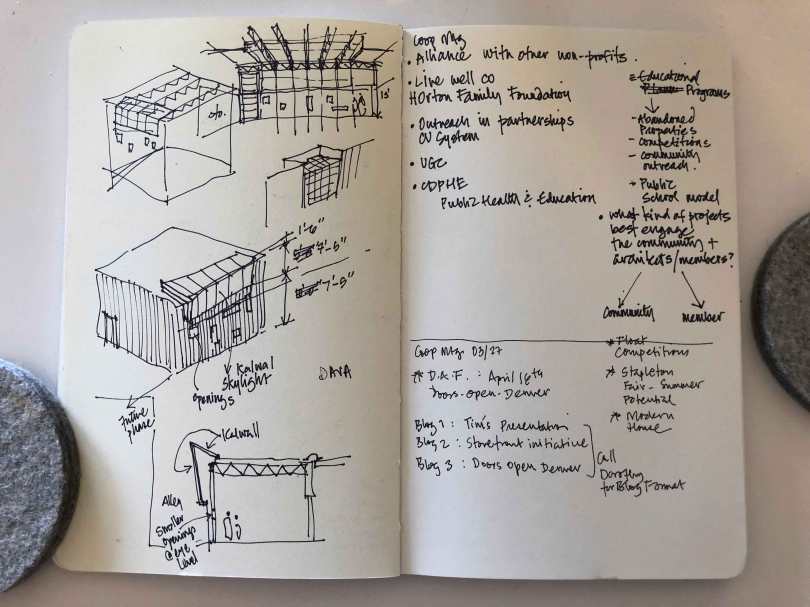 15'
1'-6"
7'-5"
7'-5"
Kalwal
Skylight
openings
DAVA
Future
phase
Kalwall
Alley
Smaller
openings
@ eye
level
Coop Mtg
• Alliance with other non-profits.
• Live well CO
Horton Family Foundation
• Outreach in partnerships
CU System
• UGC
• CDPHE
Public Health & Education
Educational
Programs
- Abandoned
Properties
- competitions
- community
outreach.
Public
School model
• what kind of projects
best engage
the community +
architects/members?
Community
member
Float
Competitions
* Stapleton
Fair - Summer
Potential
* Modern
House
Coop Mtg. 03/27
* D.A.F. : April 18th
Doors-Open-Denver
Blog 1 : Tim's Presentation
Blog 2 : Storefront initiative
Blog 3 : Doors Open Denver
Call
Dorothy
for Blog Format